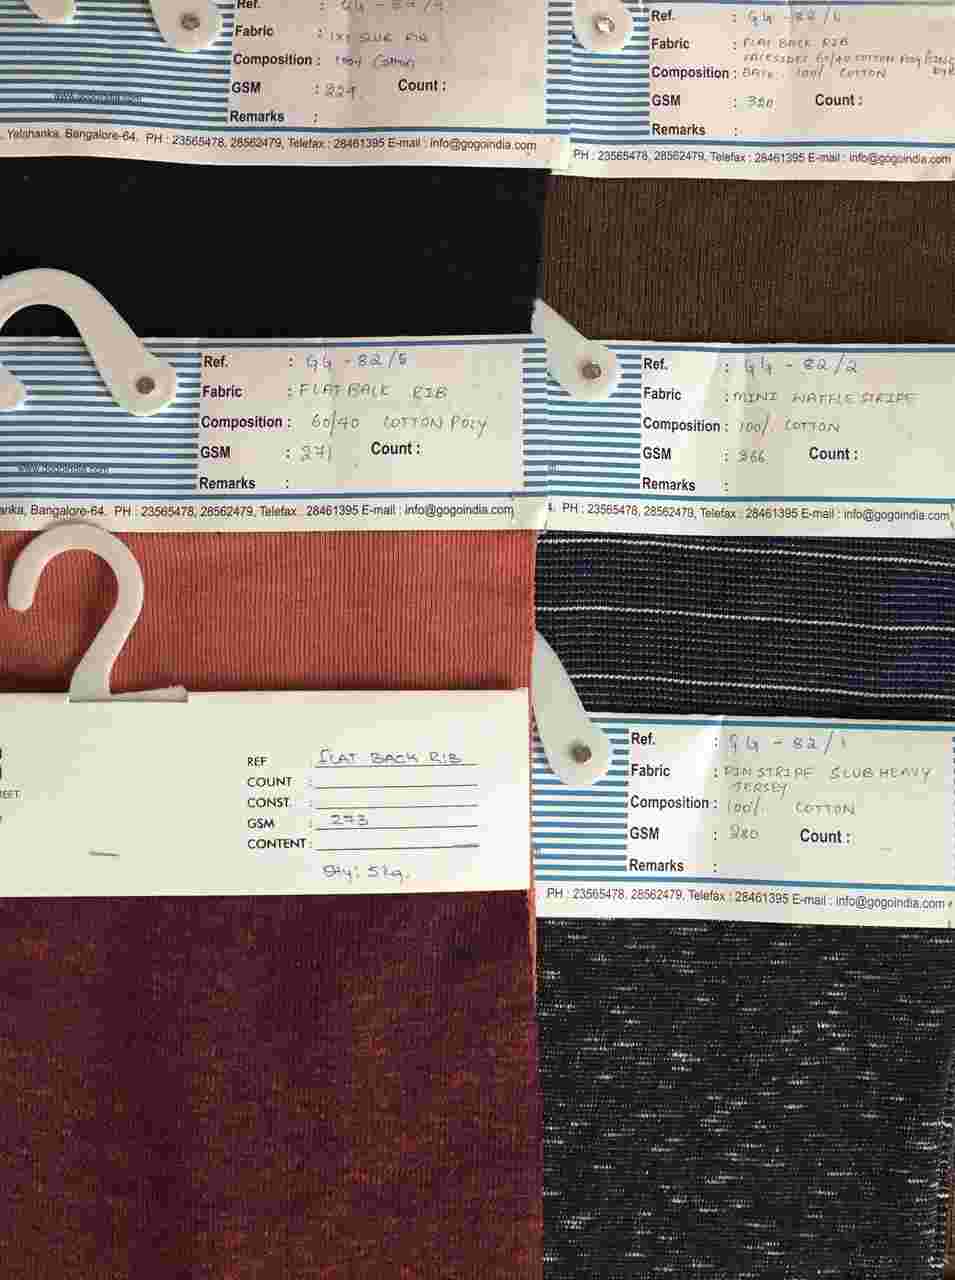 Ref. : GG - 82/
Fabric : 1X1 SLUB RIB
Composition : 100% Cotton
GSM : 229 Count :
Remarks :
www.gogoindia.com
, Yelahanka, Bangalore-64. PH : 23565478, 28562479, Telefax : 28461395 E-mail : info@gogoindia.com
Ref. : GG - 82/6
Fabric : FLAT BACK RIB
60/40 COTTON POLY
Composition : BACK 100% COTTON
GSM : 320 Count :
Remarks :
PH : 23565478, 28562479, Telefax : 28461395 E-mail : info@gogoindia.com
Ref. : GG - 82/5
Fabric : FLAT BACK RIB
Composition : 60/40 COTTON POLY
GSM : 271 Count :
Remarks :
www.gogoindia.com
anka, Bangalore-64. PH : 23565478, 28562479, Telefax : 28461395 E-mail : info@gogoindia.com
Ref. : GG - 82/2
Fabric : MINI WAFFLE STRIPE
Composition : 100% COTTON
GSM : 366 Count :
Remarks :
4. PH : 23565478, 28562479, Telefax : 28461395 E-mail : info@gogoindia.com
REET
REF : FLAT BACK RIB
COUNT :
CONST. :
GSM : 273
CONTENT :
Qty: 5kg.
Ref. : GG - 82/1
Fabric : PIN STRIPE SLUB HEAVY
JERSEY
Composition : 100% COTTON
GSM : 280 Count :
Remarks :
PH : 23565478, 28562479, Telefax : 28461395 E-mail : info@gogoindia.com